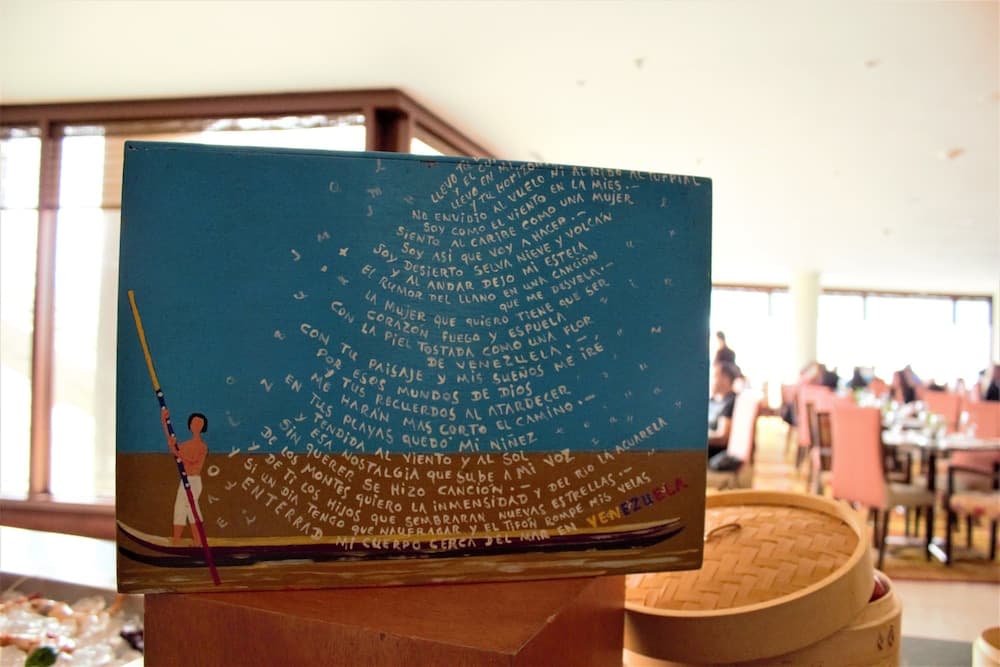 LLEVO TU
Y EL
LLEVO EN MI
Y TU HORIZON
NI AL NIDO AL TURPIAL
NO ENVIDIO AL VUELO
SOY COMO EL VIENTO EN LA MIES.-
SIENTO AL CARIBE COMO UNA MUJER
SOY ASI QUE VOY A HACER.-
SOY DESIERTO SELVA NIEVE Y VOLCÁN
Y AL ANDAR DEJO MI ESTELA
EL RUMOR DEL LLANO EN UNA CANCIÓN
QUE ME DESVELA.-
LA MUJER QUE QUIERO TIENE QUE SER
CORAZON FUEGO Y ESPUELA
CON LA PIEL TOSTADA COMO UNA FLOR
DE VENEZUELA.-
CON TU PAISAJE Y MIS SUEÑOS ME IRÉ
POR ESOS MUNDOS DE DIOS
Y TUS RECUERDOS AL ATARDECER
ME HARÁN MAS CORTO EL CAMINO.-
EN TUS PLAYAS QUEDÓ MI NIÑEZ
TENDIDA AL VIENTO Y AL SOL
Y ESA NOSTALGIA QUE SUBE A MI VOZ
SIN QUERER SE HIZO CANCIÓN.--
DE LOS MONTES QUIERO LA INMENSIDAD Y DEL RIO LA ACUARELA
Y DE TI LOS HIJOS QUE SEMBRARAN NUEVAS ESTRELLAS.--
Y SI UN DIA TENGO QUE NAUFRAGAR Y EL TIFÓN ROMPE MIS VELAS
ENTERRAD MI CUERPO CERCA DEL MAR EN VENEZUELA